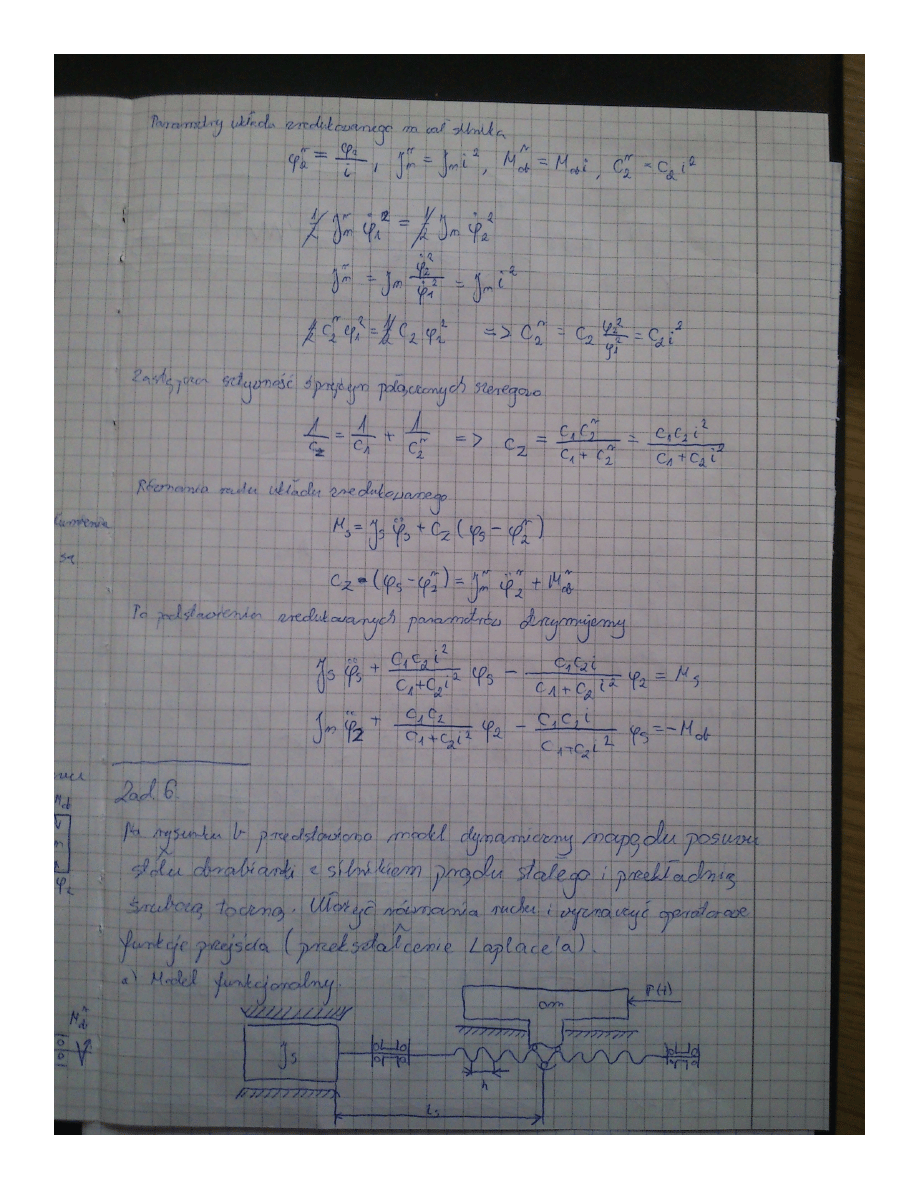 Parametry układu zredukowanego na wał silnika
φ₂ʳ = φ₂/i, Jₘʳ = Jₘi², M_obʳ = M_ob i, C₂ʳ = C₂i²
1/2 Jₘʳ φ̇₁² = 1/2 Jₘ φ̇₂²
Jₘʳ = Jₘ φ̇₂²/φ̇₁² = Jₘi²
1/2 C₂ʳ φ₁² = 1/2 C₂ φ₂² => C₂ʳ = C₂ φ₂²/φ₁² = C₂i²
Zastępcza sztywność sprężyn połączonych szeregowo
1/C_z = 1/C₁ + 1/C₂ʳ => C_z = C₁C₂ʳ/(C₁ + C₂ʳ) = C₁C₂i²/(C₁ + C₂i²)
Równania ruchu układu zredukowanego
M_s = J_s φ̈_s + C_z (φ_s − φ₂ʳ)
C_z (φ_s − φ₂ʳ) = Jₘʳ φ̈₂ʳ + M_obʳ
Po podstawieniu zredukowanych parametrów otrzymujemy
J_s φ̈_s + C₁C₂i²/(C₁+C₂i²) φ_s − C₁C₂i/(C₁+C₂i²) φ₂ = M_s
Jₘ φ̈₂ + C₁C₂/(C₁+C₂i²) φ₂ − C₁C₂i/(C₁+C₂i²) φ_s = −M_ob
Zad. 6.
Na rysunku b przedstawiono model dynamiczny napędu posuwu
stołu obrabiarki z silnikiem prądu stałego i przekładnią
śrubową toczną. Ułożyć równania ruchu i wyznaczyć operatorowe
funkcje przejścia (przekształcenie Laplace'a).
a) Model funkcjonalny.
J_s
m
F(t)
h
l_s
są
M_ob
φ₂
M_obʳ